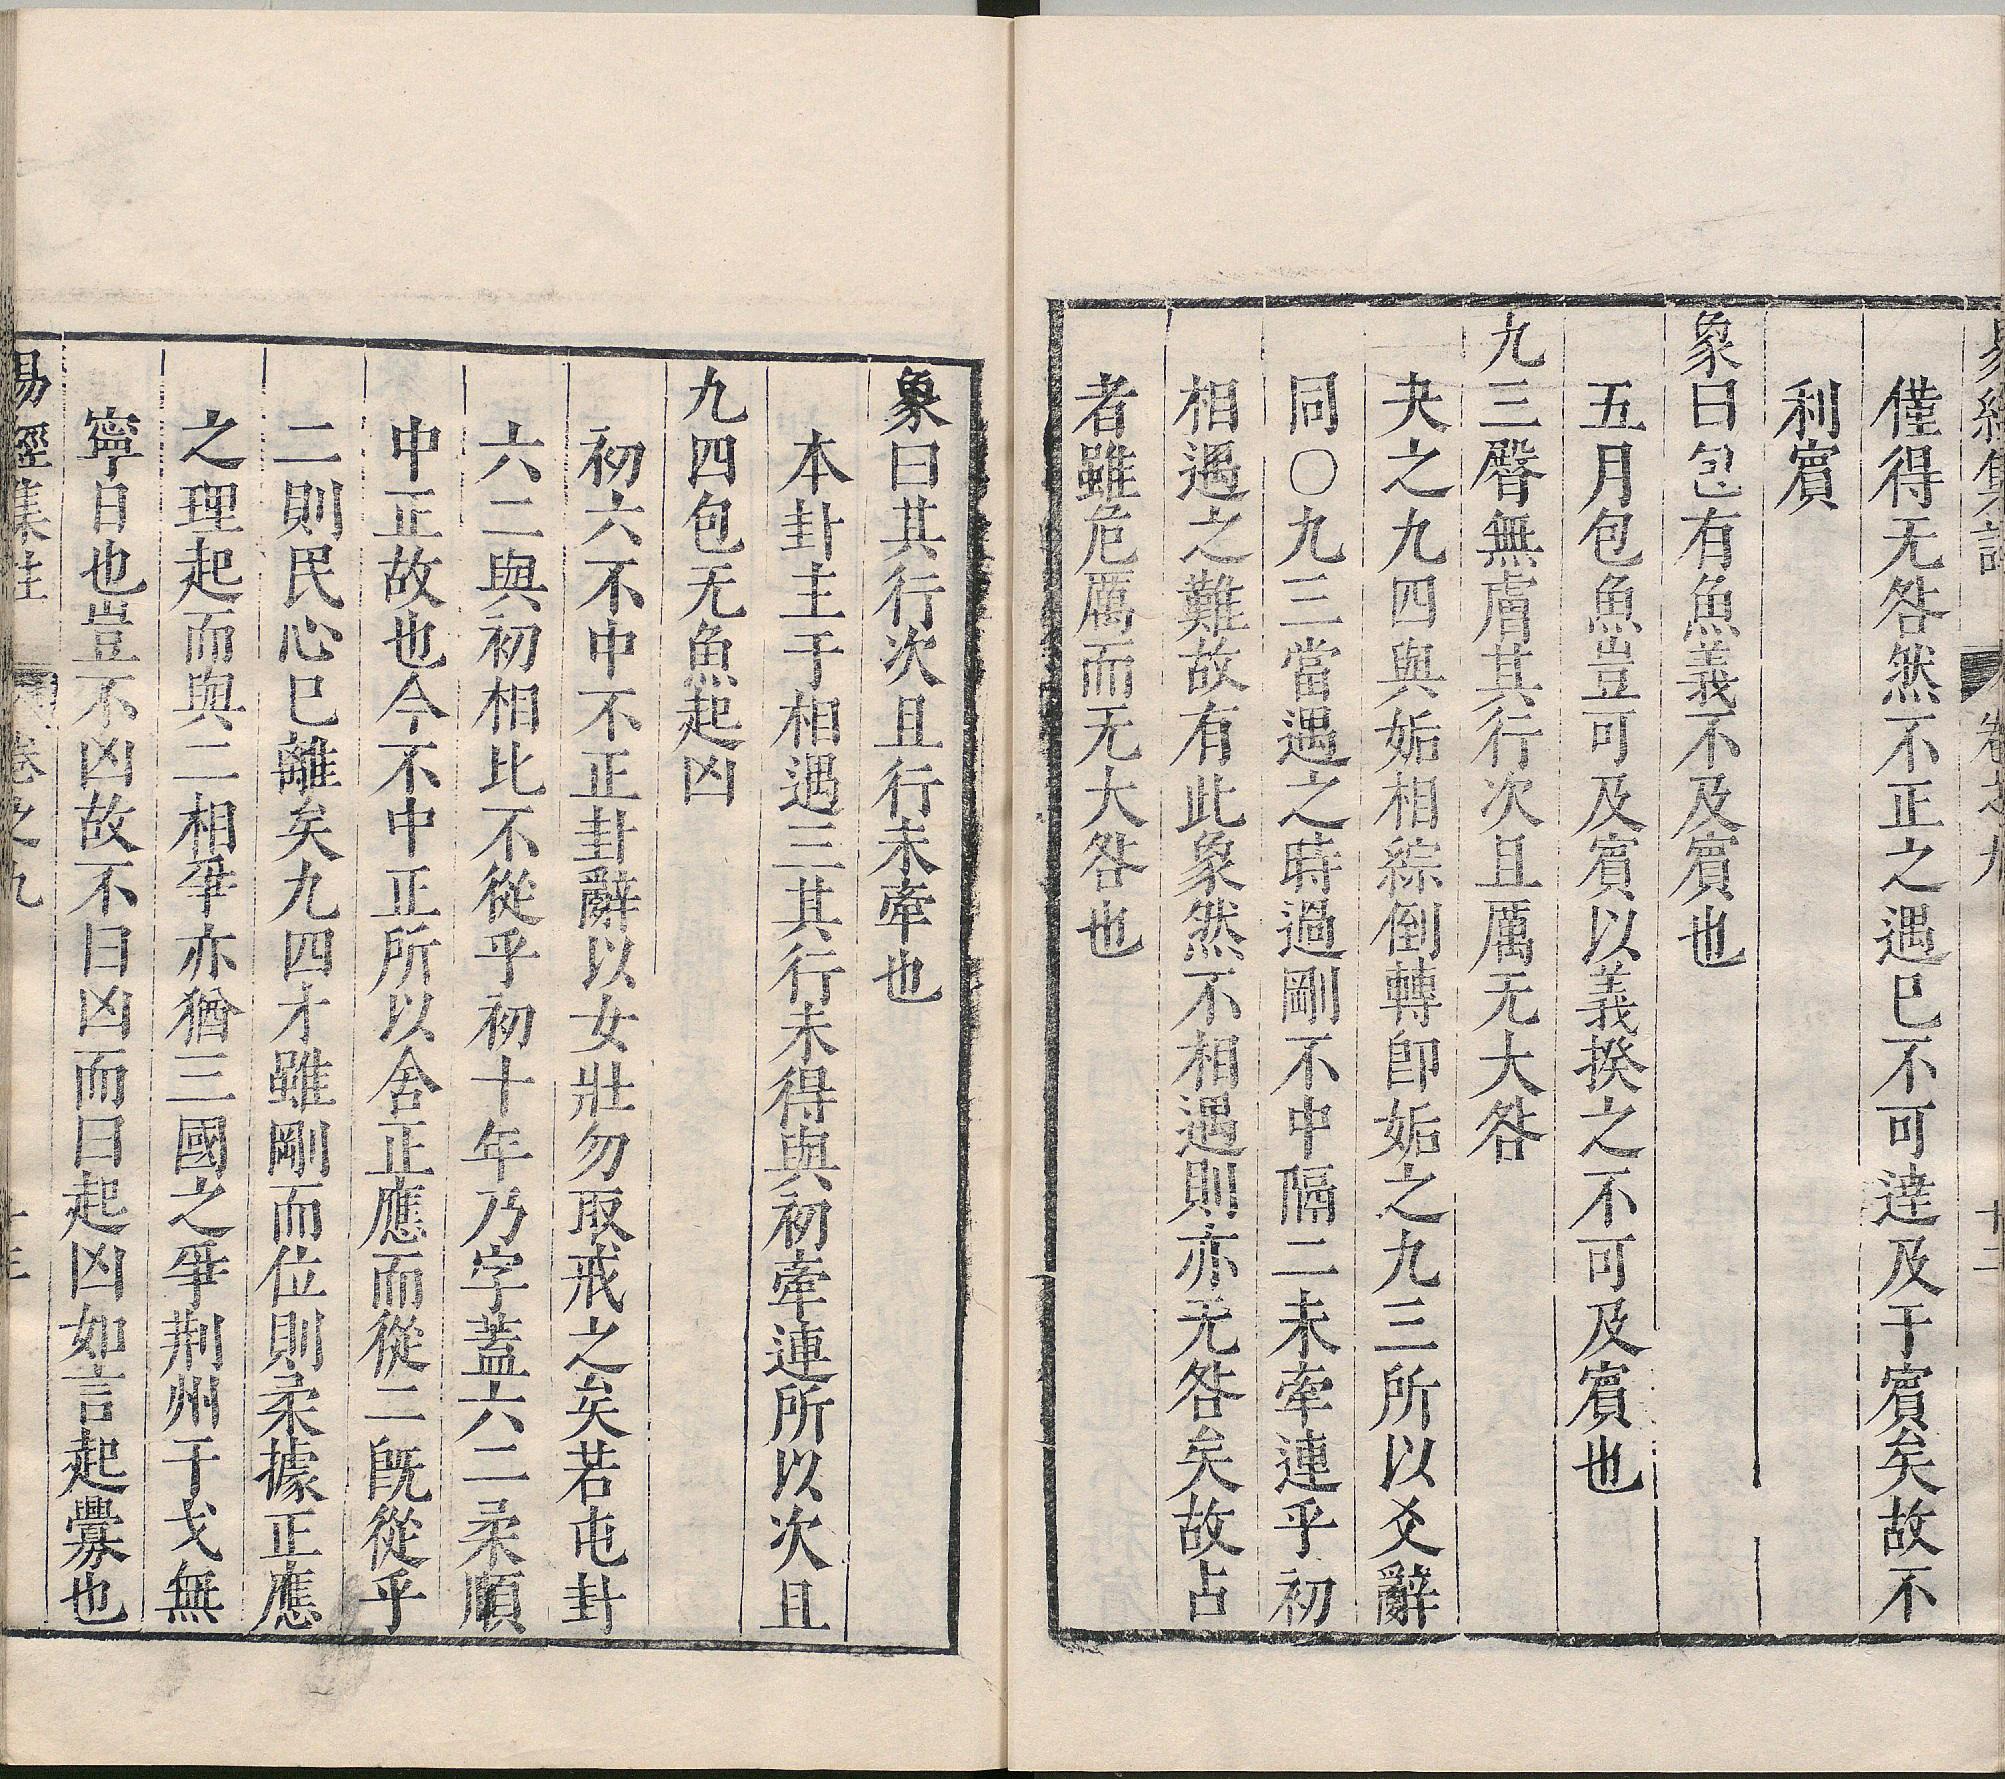 僅得无咎然不正之遇已不可達及于賔矣故不
利賔
象曰包有魚義不及賔也
五月包魚豈可及賔以義揆之不可及賔也
九三臀無膚其行次且厲无大咎
夬之九四與姤相綜倒轉卽姤之九三所以爻辭
同○九三當遇之時過剛不中隔二未牽連乎初
相遇之難故有此象然不相遇則亦无咎矣故占
者雖危厲而无大咎也
象曰其行次且行未牽也
本卦主于相遇三其行未得與初牽連所以次且
九四包无魚起凶
初六不中不正卦辭以女壯勿取戒之矣若屯卦
六二與初相比不從乎初十年乃字蓋六二柔順
中正故也今不中正所以舍正應而從二旣從乎
二則民心已離矣九四才雖剛而位則柔據正應
之理起而與二相爭亦猶三國之爭荆州干戈無
寧日也豈不凶故不曰凶而曰起凶如言起釁也
易經集註 卷之九